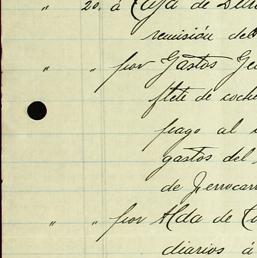 " 20. á Caja de
remisión del
" " por Gastos Ge
flete de coche
pago al
gastos del
de Ferrocar
" " por Alda de
diarios á